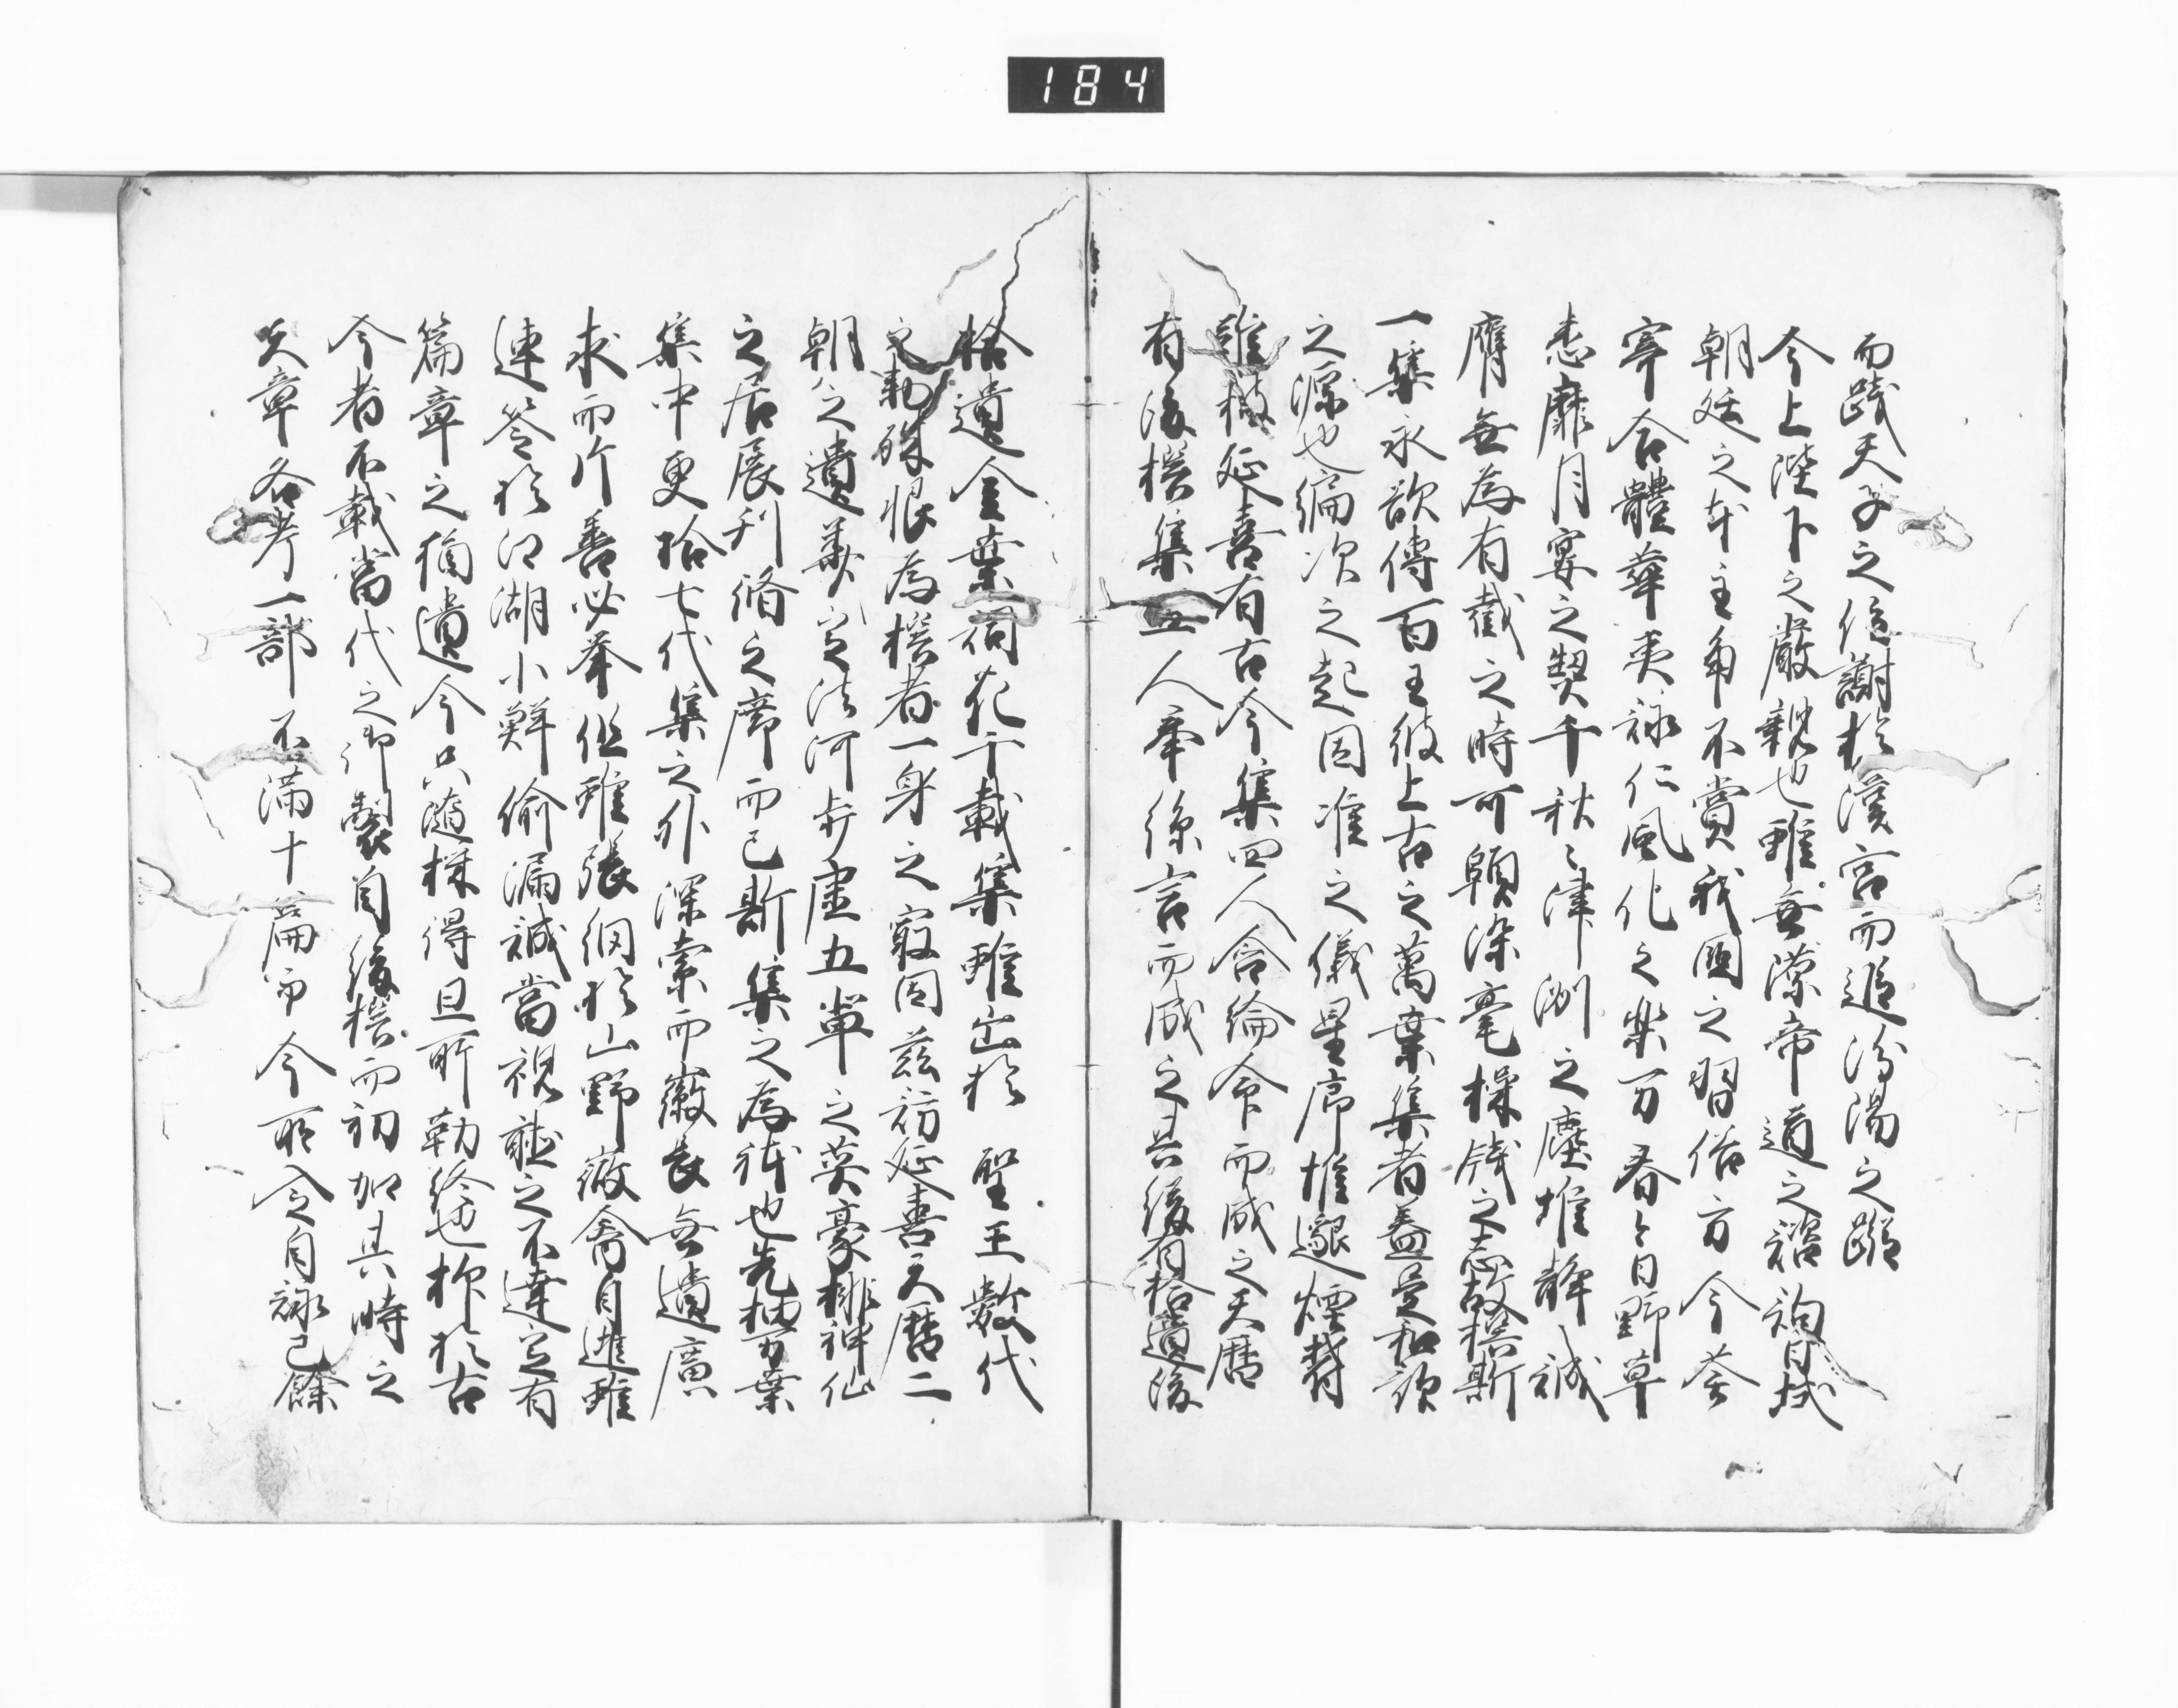 184
而践天子之位謝於漢宮而追汾陽之蹤
今上陛下之嚴親也雖無隙帝道之諮詢日域
朝廷之本主爭不賞我國之習俗方今荃
宰合體華夷詠仁風化之樂万春々日野草
悉靡月宴之契千秋〻津洲之塵堆靜誠
膺無為有截之時可頤染毫操牋之志故撰斯
一集永欲傳百王彼上古之萬葉集者蓋是和歌
之源也編次之起因准之儀星序惟邈煙鬱
難披延喜有古今集四人含綸命而成之天曆
有後撰集五人奉絲言而成之其後有拾遺後
拾遺金葉詞花千載集雖出於 聖王數代
之勅殊恨為撰者一身之㝡因茲訪延喜天曆二
朝之遺美定法河步虛五輩之英豪排神仙
之居展刊脩之席而已斯集之為體也先抽万葉
集中更拾七代集之外深索而微長無遺廣
求而片善必舉但雖張網於山野微禽自逃雖
連筌於江湖小鮮偷漏誠當視聽之不達定有
篇章之猶遺今只隨採得且所勒終也抑於古
今者不載當代之御製自後撰而初加其時之
天章各考一部不滿十篇而今所入之自詠已餘